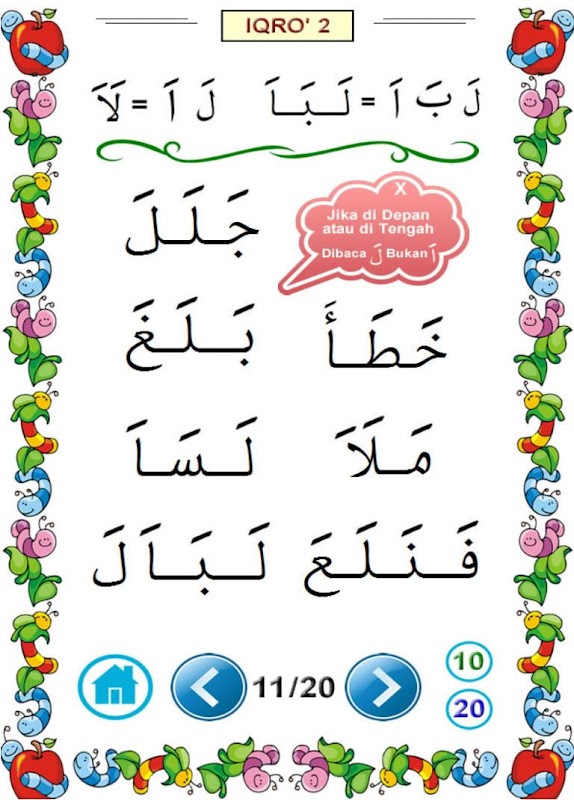 IQRO' 2
لَ بَ اَ = لَـبَـاَ   لَ اَ = لَاَ
X
Jika di Depan
atau di Tengah
Dibaca لَ Bukan اَ
جَـلَـلَ
خَـطَـأَ   بَـلَـغَ
مَـلَاَ   لَـسَـاَ
فَـنَـلَـعَ   لَـبَـاَ لَ
10
11/20
20